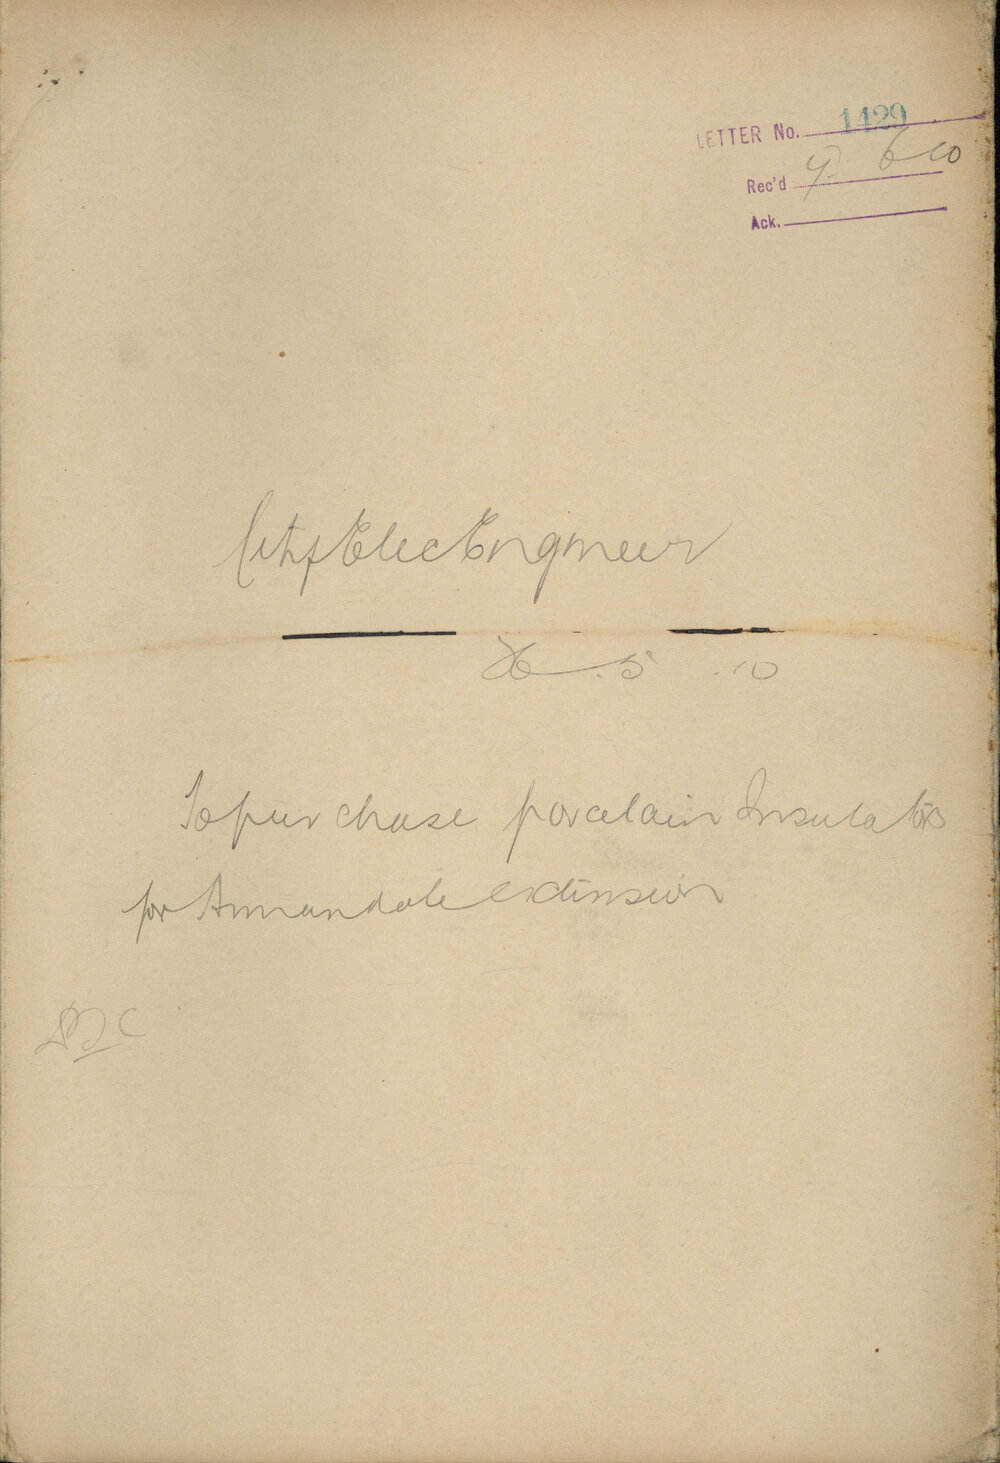 LETTER No. 1429
Rec'd 7. 6 10
Ack.
City Elec Engineer
5 . 10
To purchase porcelain Insulators
for Annandale extension